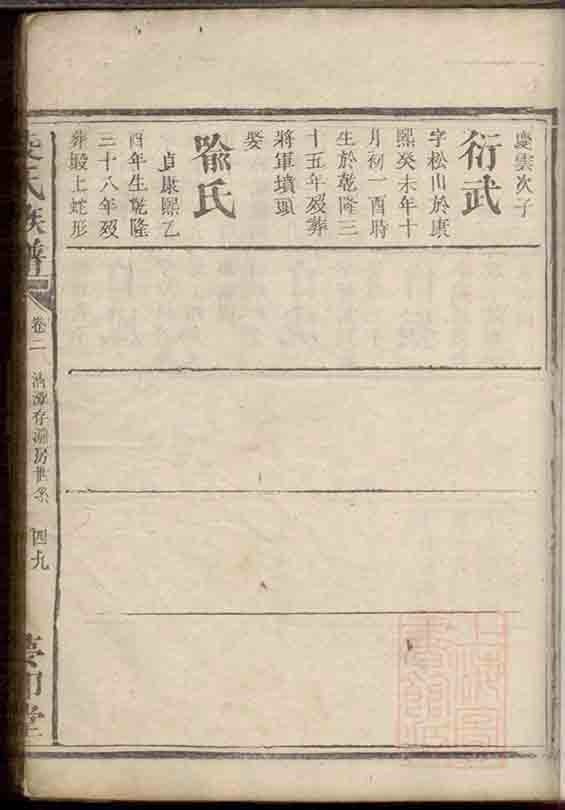 慶雲次子
衍武
字松山於康
熙癸未年十
月初一酉時
生於乾隆三
十五年歿葬
將軍墳頭
娶
喻氏
貞康熙乙
酉年生乾隆
三十八年歿
葬塅上蛇形
氏族譜
卷二
房世系
四九
堂
上海圖書館